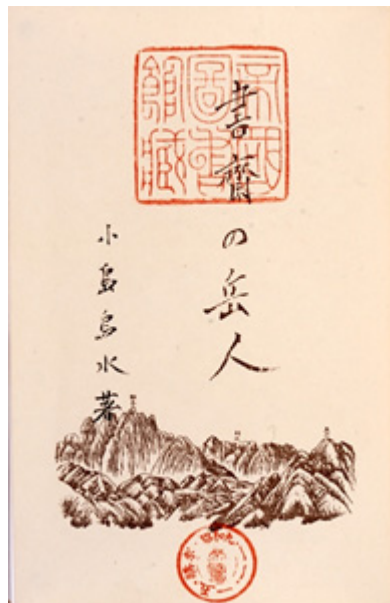 帝國
圖書
館藏
書齋の岳人
小島烏水著